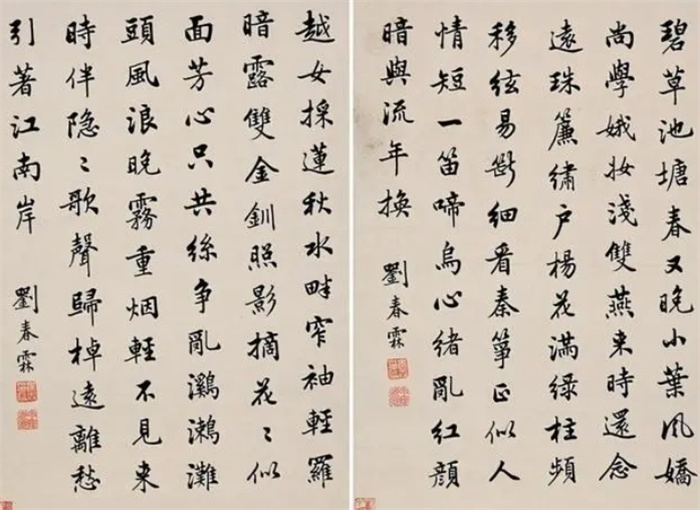 碧草池塘春又晚小葉風嬌
尚學娥妝淺雙燕来時還念
遠珠簾繡户楊花滿綠柱頻
移絃易斷細看秦箏正似人
情短一笛啼烏心緒亂紅顏
暗與流年換 劉春霖
越女採蓮秋水畔窄袖輕羅
暗露雙金釧照影摘花〻似
面芳心只共絲争亂鸂鶒灘
頭風浪晚霧重烟輕不見来
時伴隐〻歌聲歸棹遠離愁
引著江南岸 劉春霖